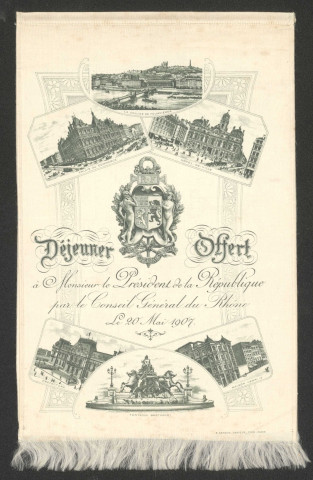 Déjeuner Offert
à Monsieur le Président de la République
par le Conseil Général du Rhône
Le 20 Mai 1907.